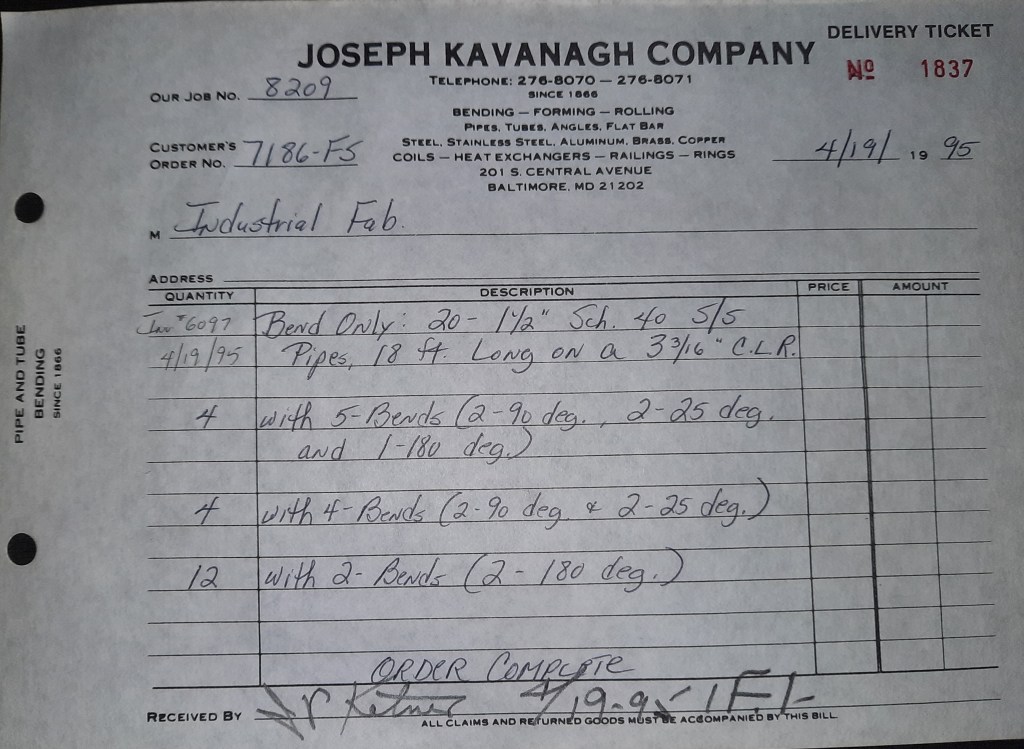 DELIVERY TICKET
JOSEPH KAVANAGH COMPANY
No 1837
TELEPHONE: 276-8070 — 276-8071
SINCE 1866
OUR JOB NO. 8209
BENDING — FORMING — ROLLING
PIPES, TUBES, ANGLES, FLAT BAR
STEEL, STAINLESS STEEL, ALUMINUM, BRASS, COPPER
CUSTOMER'S ORDER NO. 7186-FS
COILS — HEAT EXCHANGERS — RAILINGS — RINGS
4/19/ 19 95
201 S. CENTRAL AVENUE
BALTIMORE, MD 21202
M Industrial Fab.
ADDRESS
QUANTITY DESCRIPTION PRICE AMOUNT
Inv #6097 Bend Only: 20 - 1 1/2" Sch. 40 S/S
4/19/95 Pipes, 18 ft. Long on a 3 3/16" C.L.R.
4 with 5-Bends (2-90 deg., 2-25 deg.
and 1-180 deg.)
4 with 4-Bends (2-90 deg & 2-25 deg.)
12 with 2-Bends (2-180 deg.)
ORDER COMPLETE
RECEIVED BY 4/19-95
ALL CLAIMS AND RETURNED GOODS MUST BE ACCOMPANIED BY THIS BILL
PIPE AND TUBE
BENDING
SINCE 1866